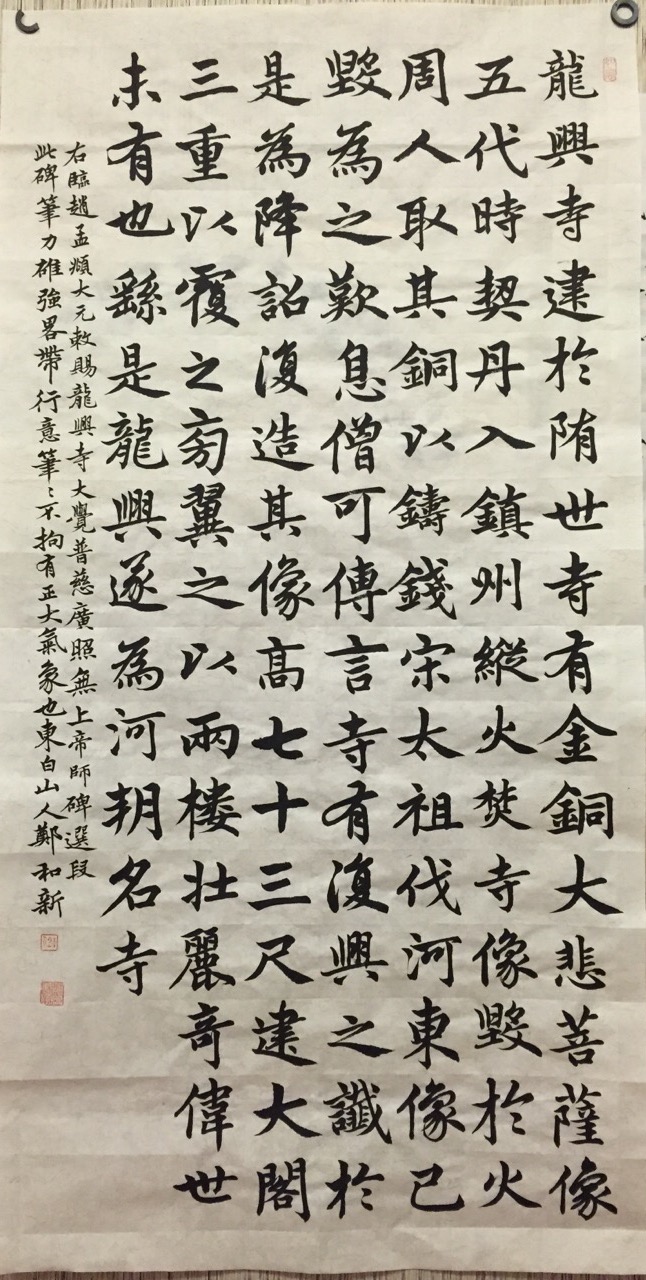 龍興寺建於隋世寺有金銅大悲菩薩像
五代時契丹入鎮州縱火焚寺像毀於火
周人取其銅以鑄錢宋太祖伐河東像已
毀為之歎息僧可傳言寺有復興之讖於
是為降詔復造其像高七十三尺建大閣
三重以覆之旁翼之以兩楼壯麗奇偉世
未有也繇是龍興遂為河朔名寺
右臨趙孟頫大元敕賜龍興寺大覺普慈廣照無上帝師碑選段
此碑筆力雄強畧帶行意筆〻不拘有正大氣象也東白山人鄭和新